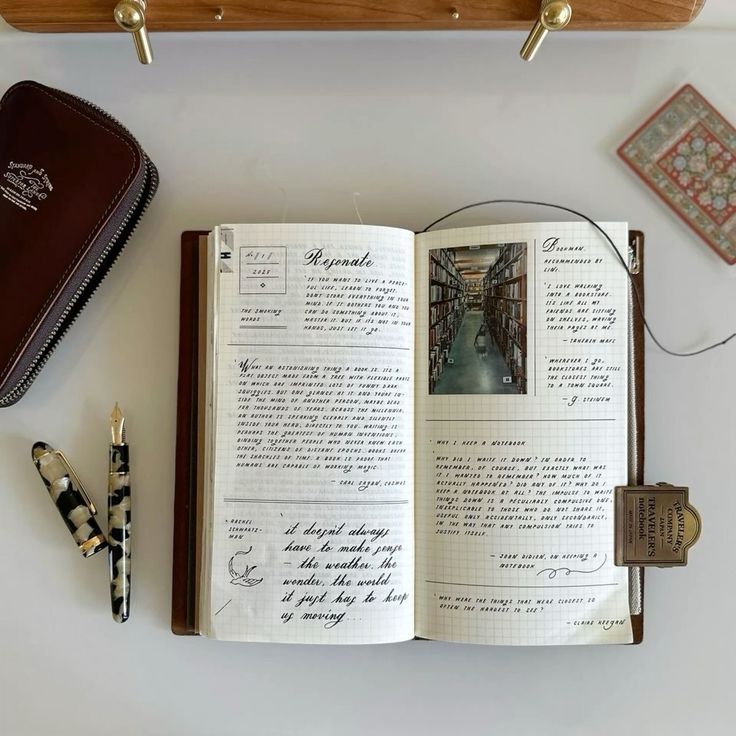 STANDARD AND STRANGE
SUPERIOR LABOR
No 818
2025
THE SMOKING
WORDS
Resonate
'IF YOU WANT TO LIVE A PEACE-
FUL LIFE, LEARN TO FORGET.
DONT STORE EVERYTHING IN YOUR
MIND. IF IT BOTHERS YOU AND YOU
CAN DO SOMETHING ABOUT IT,
MASTER IT. BUT IF ITS NOT IN YOUR
HANDS, JUST LET IT GO.
'WHAT AN ASTONISHING THING A BOOK IS. ITS A
FLAT OBJECT MADE FROM A TREE WITH FLEXIBLE PARTS
ON WHICH ARE IMPRINTED LOTS OF FUNNY DARK
SQUIGGLES. BUT ONE GLANCE AT IT AND YOURE IN-
SIDE THE MIND OF ANOTHER PERSON, MAYBE DEAD
FOR THOUSANDS OF YEARS. ACROSS THE MILLENNIA,
AN AUTHOR IS SPEAKING CLEARLY AND SILENTLY
INSIDE YOUR HEAD, DIRECTLY TO YOU. WRITING IS
PERHAPS THE GREATEST OF HUMAN INVENTIONS,
BINDING TOGETHER PEOPLE WHO NEVER KNEW EACH
OTHER, CITIZENS OF DISTANT EPOCHS. BOOKS BREAK
THE SHACKLES OF TIME. A BOOK IS PROOF THAT
HUMANS ARE CAPABLE OF WORKING MAGIC.
— CARL SAGAN, COSMOS
'RACHEL
SCHWARTZ-
MAN
'it doesnt always
have to make sense
— the weather. the
wonder, the world
it just has to keep
us moving...
BOOKMAN,
RECOMMENDED BY
LINI.
'I LOVE WALKING
INTO A BOOKSTORE.
ITS LIKE ALL MY
FRIENDS ARE SITTING
ON SHELVES, WAVING
THEIR PAGES AT ME.
— TAHEREH MAFI
'WHEREVER I GO,
BOOKSTORES ARE STILL
THE CLOSEST THING
TO A TOWN SQUARE.
— G. STEINEM
'WHY I KEEP A NOTEBOOK
'WHY DID I WRITE IT DOWN? IN ORDER TO
REMEMBER, OF COURSE, BUT EXACTLY WHAT WAS
IT I WANTED TO REMEMBER? HOW MUCH OF IT
ACTUALLY HAPPENED? DID ANY OF IT? WHY DO I
KEEP A NOTEBOOK AT ALL? THE IMPULSE TO WRITE
THINGS DOWN IS A PECULIARLY COMPULSIVE ONE,
INEXPLICABLE TO THOSE WHO DO NOT SHARE IT,
USEFUL ONLY ACCIDENTALLY, ONLY SECONDARILY,
IN THE WAY THAT ANY COMPULSION TRIES TO
JUSTIFY ITSELF.
— JOAN DIDION, ON KEEPING A
NOTEBOOK
'WHY WERE THE THINGS THAT WERE CLOSEST SO
OFTEN THE HARDEST TO SEE?
— CLAIRE KEEGAN
TRAVELER'S
COMPANY
JAPAN
TRAVELER'S
notebook
MADE IN JAPAN